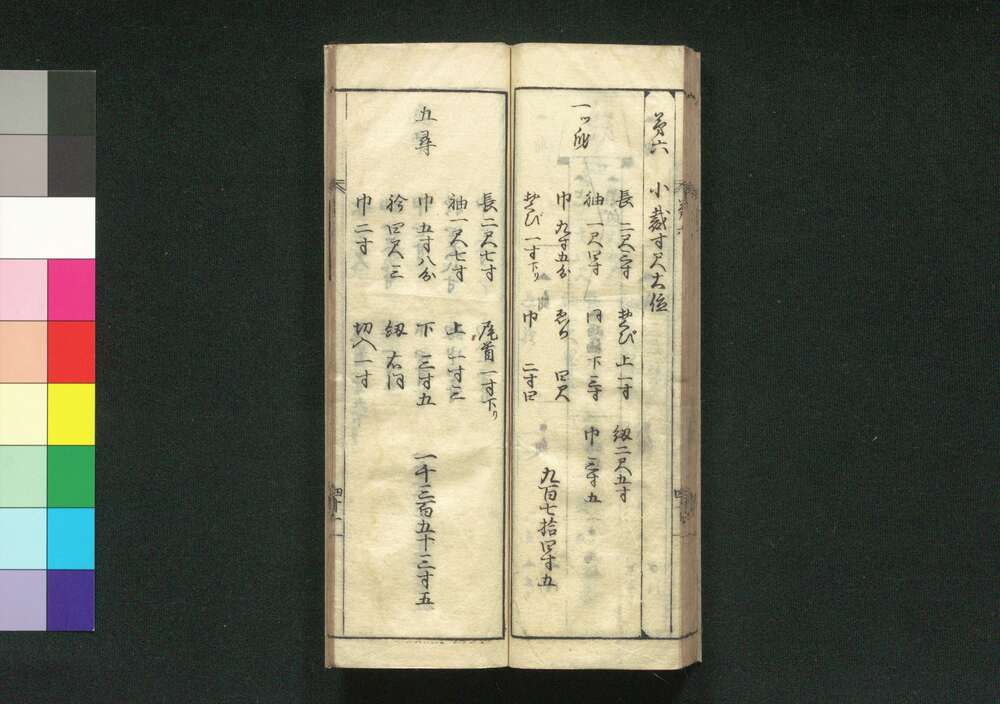 第六 小裁寸尺大位
一ツ身
長 二尺三寸 ゑび 上一寸 紐二尺五寸
袖 一尺四寸 同 下三寸 巾 三寸五
巾 九寸五分 ゑり 四尺
ゑび 一寸下り 巾 二寸四
九百七拾四寸五
五尋
長二尺七寸 一寸下り
袖一尺七寸 上 一寸三
巾 五寸八分 下 三寸五
衿四尺三 紐 右同
巾 二寸 切入一寸
一千三百五十三寸五
四十一